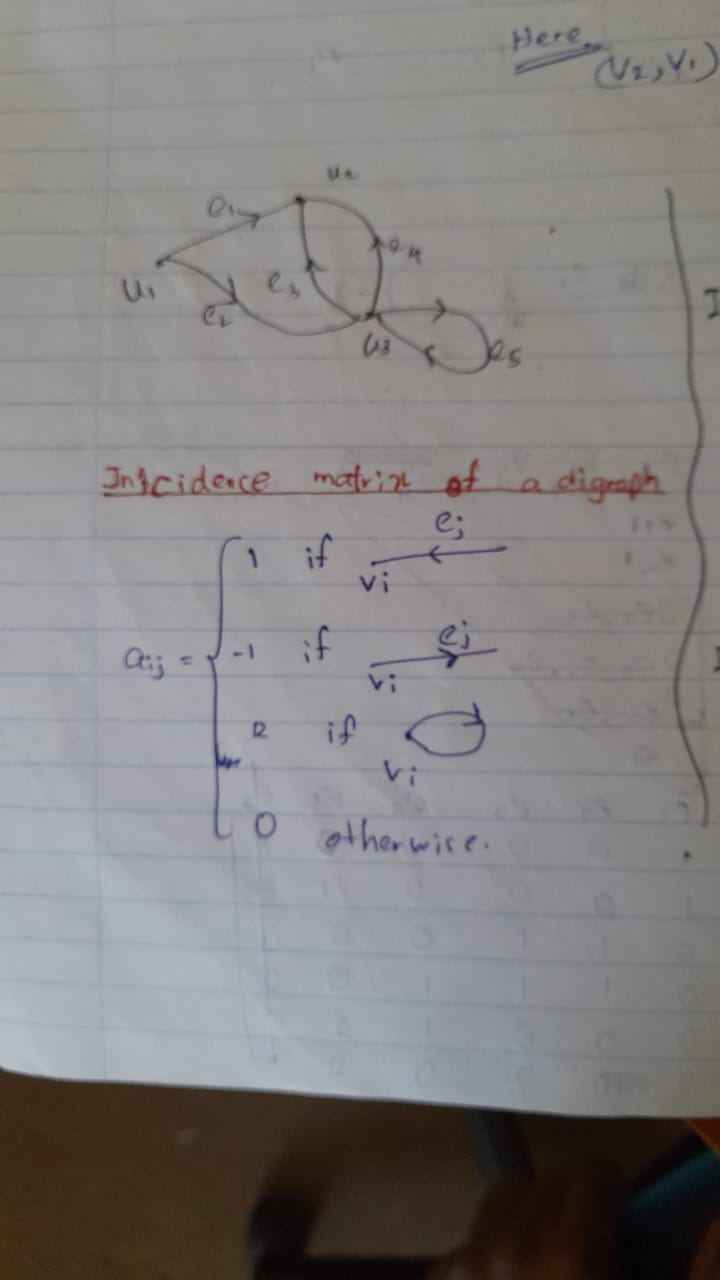 Here
(V2, V1)
u2
e1
e4
u1
e3
e2
u3
e5
I
Incidence matrix of a digraph
ej
1 if
vi
ej
aij = -1 if
vi
2 if
vi
0 otherwise.